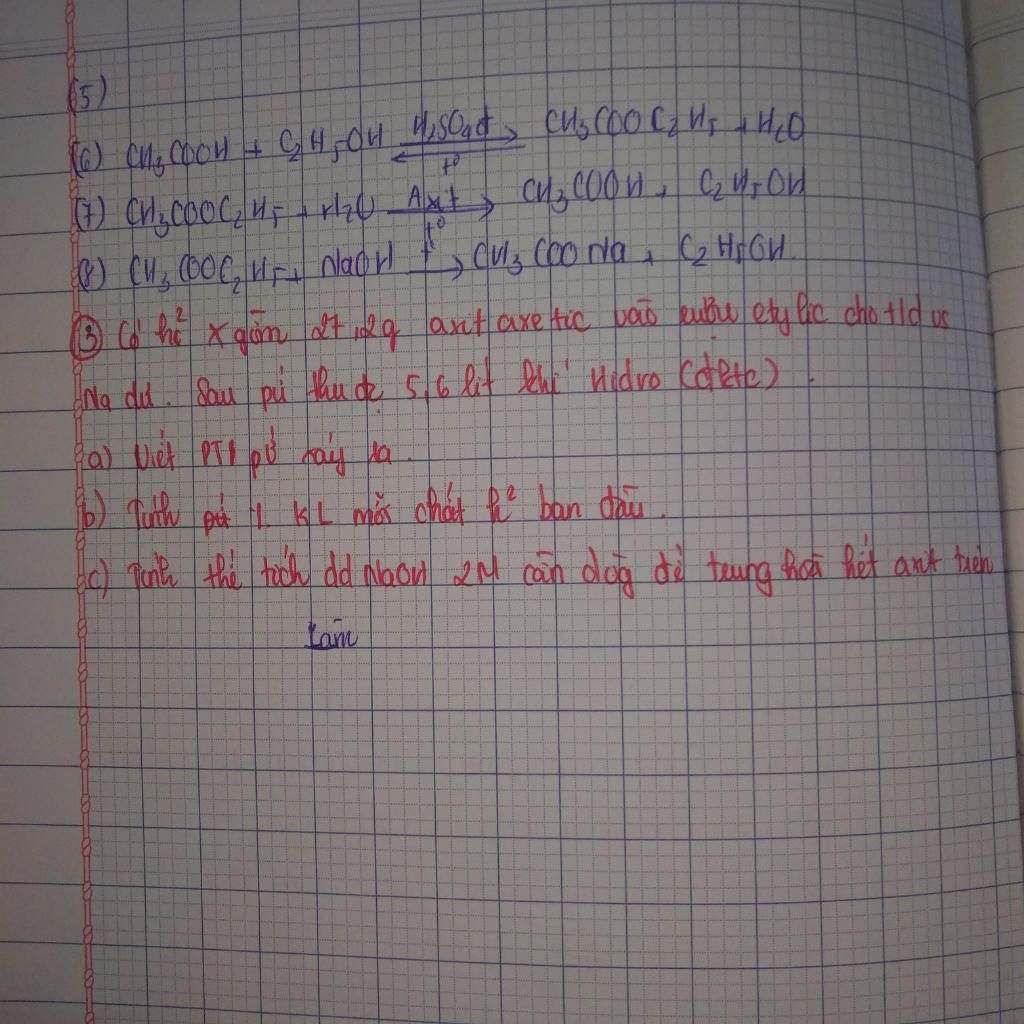 (5)
(6) CH3COOH + C2H5OH ⇌ H2SO4đ t° CH3COOC2H5 + H2O
(7) CH3COOC2H5 + H2O → Axit t° CH3COOH + C2H5OH
(8) CH3COOC2H5 + NaOH → t° CH3COONa + C2H5OH
③ Có h² X gồm 27,2g axit axetic vào rượu etylic cho t/d vs
Na dư. Sau pứ thu đc 5,6 lít khí Hidro (đktc).
a) Viết PT pứ xảy ra.
b) Tính % KL mỗi chất h² ban đầu.
c) Tính thể tích dd NaOH 2M cần dùg để trung hoà hết axit trên
Làm